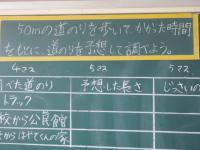 50mの道のりを歩いて、かかった時間
をもとに、道のりを予想して調べよう。
4マス 5マス 5マス
べた道のり 予想した長さ じっさいの
トラック
校から公民館